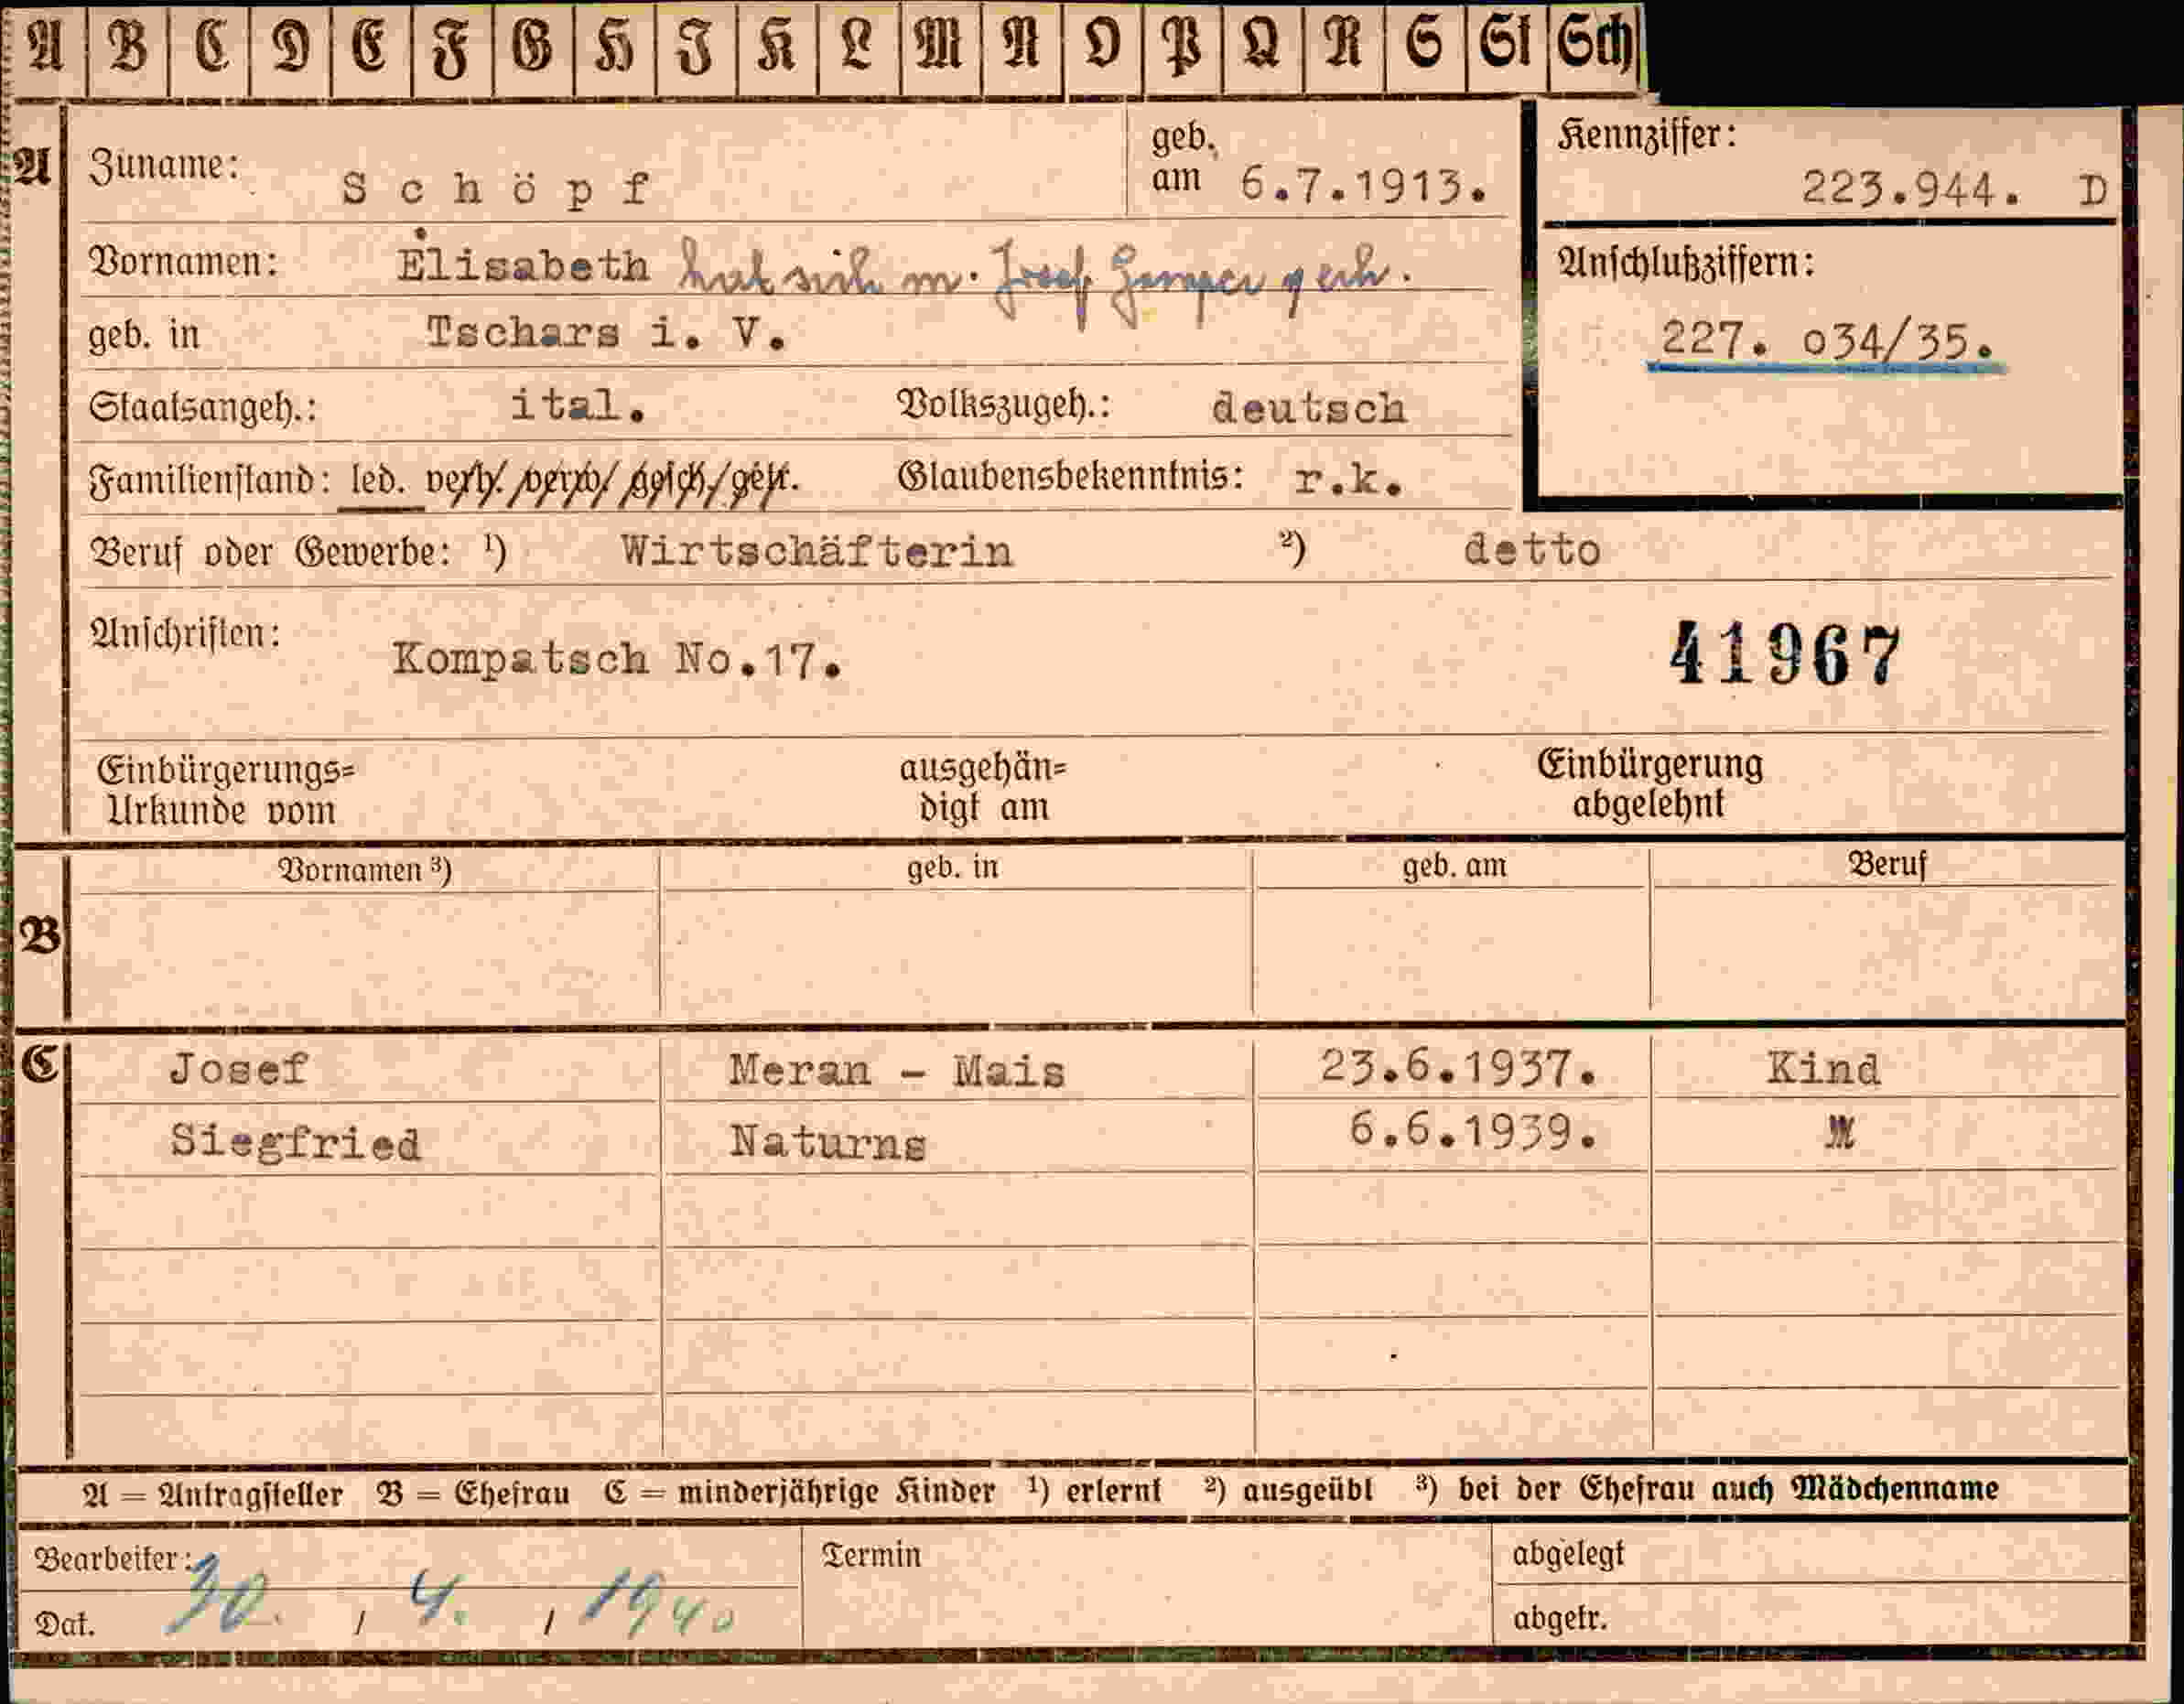 A B C D E F G H J K L M N O P Q R S St Sch
A Zuname: Schöpf geb. am 6.7.1913. Kennziffer: 223.944. D
Vornamen: Elisabeth hat sich m. Josef geh. Anschlußziffern:
geb. in Tschars i. V. 227. o34/35.
Staatsangeh.: ital. Volkszugeh.: deutsch
Familienstand: led. verh. verw. gesch. getr. Glaubensbekenntnis: r.k.
Beruf oder Gewerbe: ¹) Wirtschäfterin ²) detto
Anschriften: Kompatsch No.17. 41967
Einbürgerungs= ausgehän= Einbürgerung
Urkunde vom digt am abgelehnt
Vornamen ³) geb. in geb. am Beruf
B
C Josef Meran - Mais 23.6.1937. Kind
Siegfried Naturns 6.6.1939.
A = Antragsteller B = Ehefrau C = minderjährige Kinder ¹) erlernt ²) ausgeübt ³) bei der Ehefrau auch Mädchenname
Bearbeiter: Termin abgelegt
Dat. 30. / 4. / 1940 abgetr.